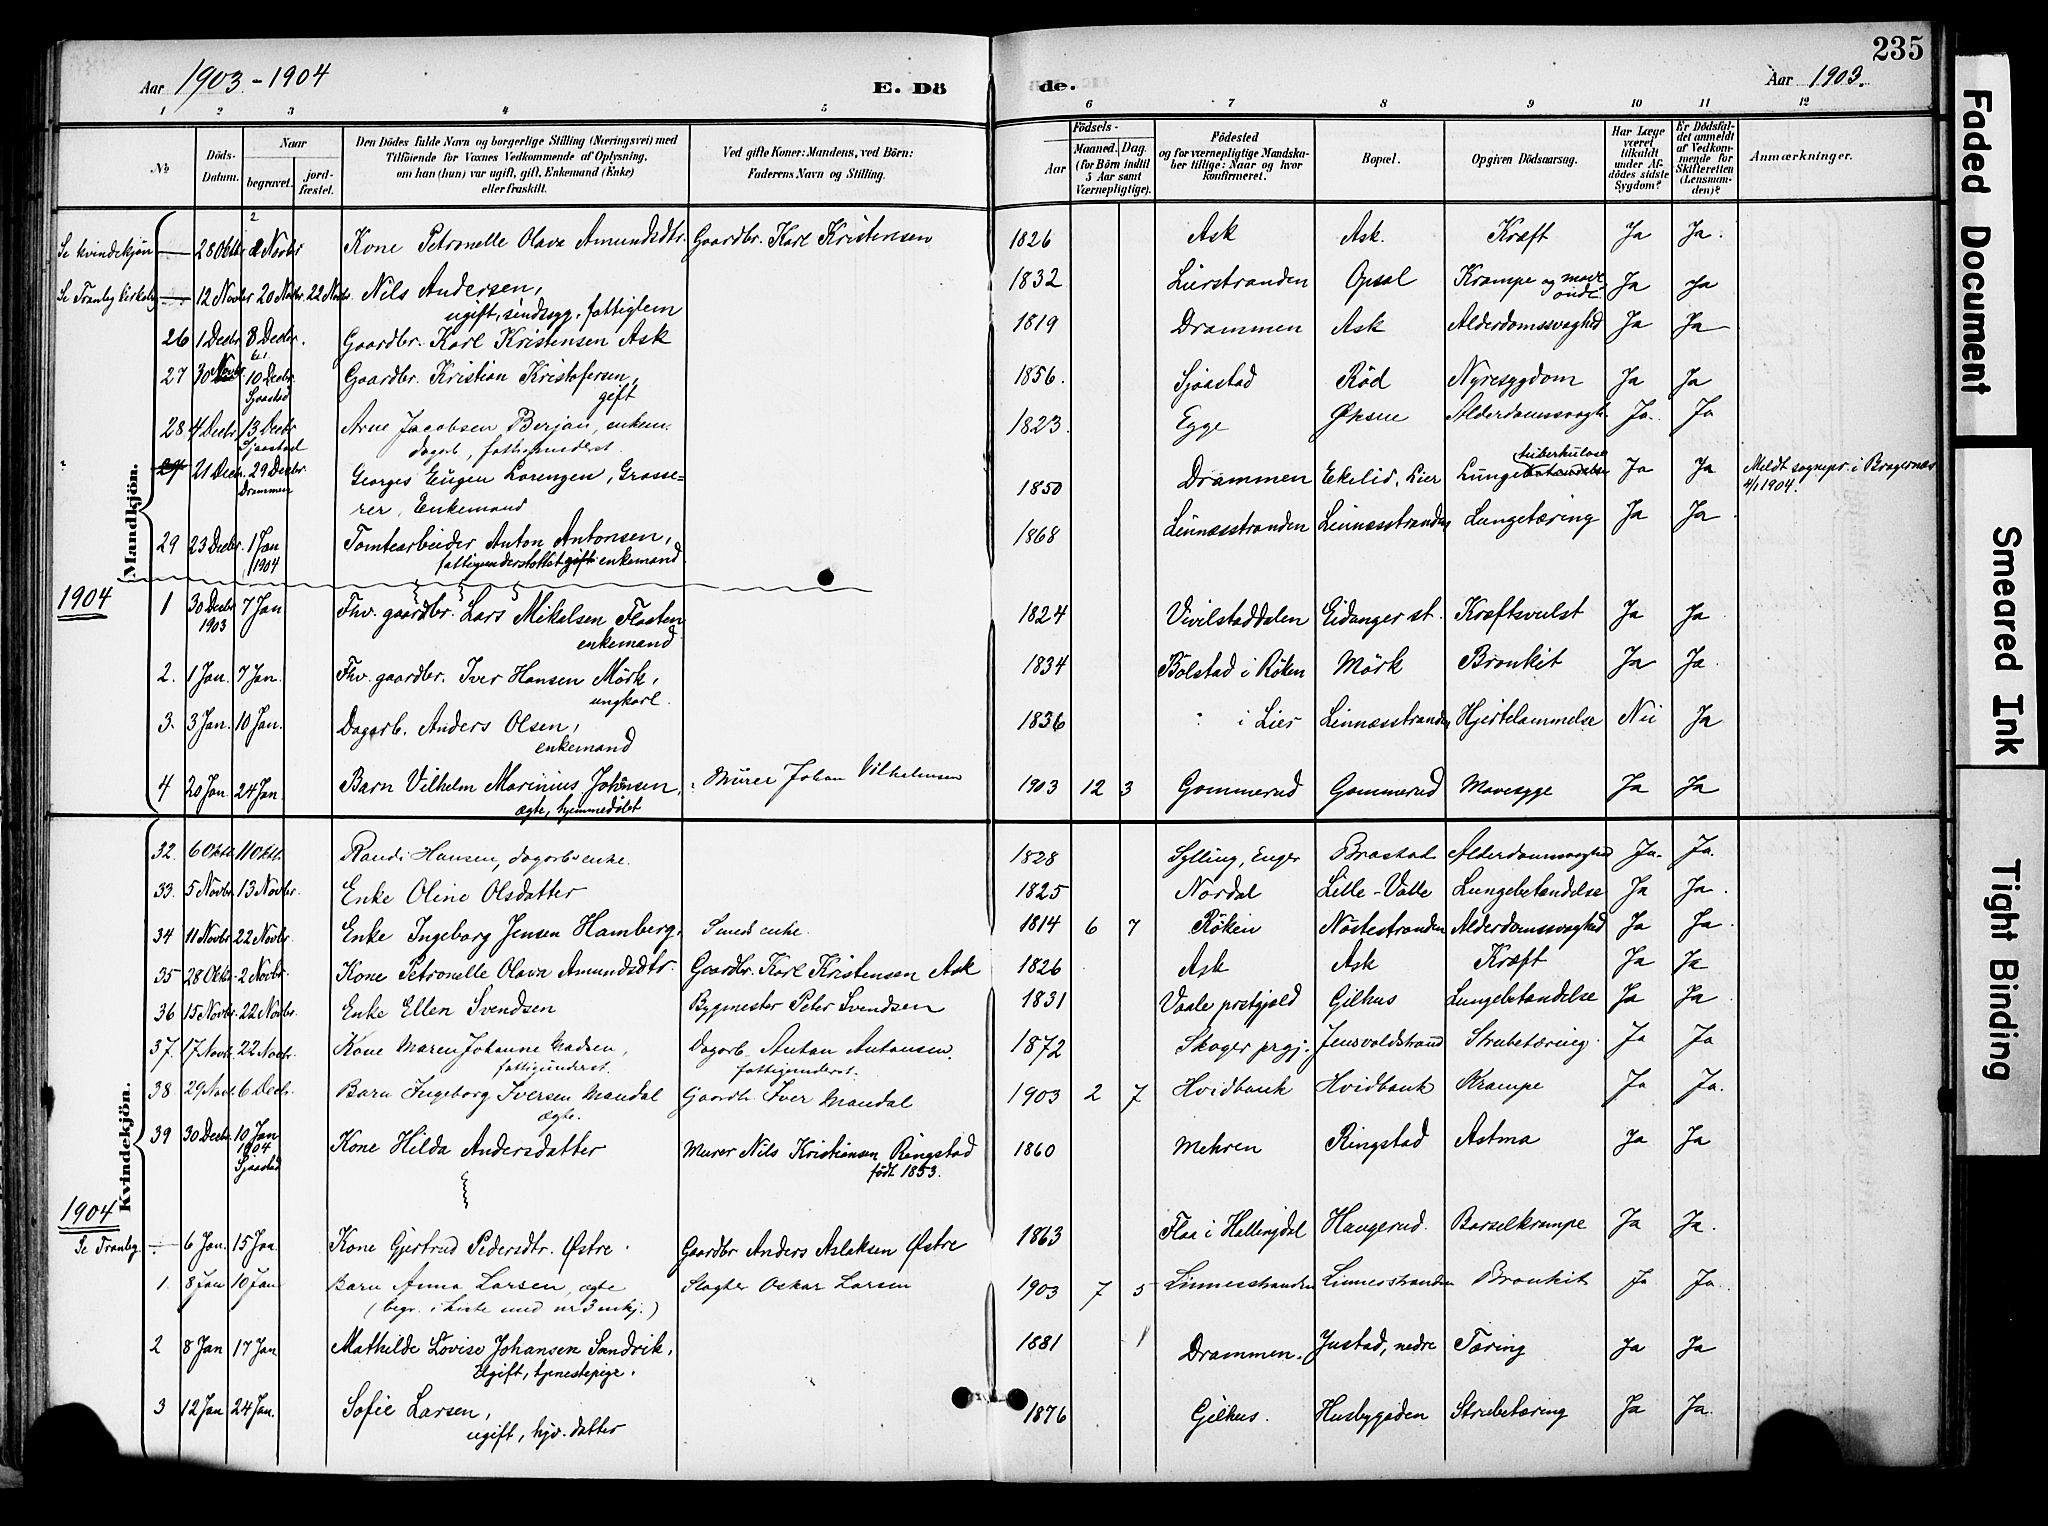 235
Aar 1903-1904
E. Dö
de.
Aar 1903.
1 2 3 4 5 6 7 8 9 10 11 12
No.
Döds-Datum.
Naar
begravet.
jord-fæstet.
Den Dödes fulde Navn og borgerlige Stilling (Næringsvei) med
Tilföiende for Voxnes Vedkommende af Oplysning,
om han (hun) var ugift, gift, Enkemand (Enke)
eller fraskilt.
Ved gifte Koner: Mandens, ved Börn:
Faderens Navn og Stilling.
Födsels-
Aar
Maaned. Dag.
(for Börn indtil
5 Aar samt
Værnepligtige).
Födested
og for værnepligtige Mandska-
ber tillige: Naar og hvor
konfirmeret.
Bopæl.
Opgiven Dödsaarsag.
Har Læge
været
tilkaldt
under Af-
dödes sidste
Sygdom?
Er Dödsfal-
det anmeldt
af Vedkom-
mende for
Skifteretten
(Lensman-
den)?
Anmærkninger.
Mandkjön.
Se kvindekjön — 28 Oktbr 2 Novbr Kone Petronelle Olava Amundsdtr. Gaardbr. Karl Kristensen 1826 Ask Ask. Kræft Ja Ja.
Se Tranby Kirkebog — 12 Novbr 20 Novbr. 22 Novbr. Nils Andersen, 1832 Lierstranden Opsal Krampe og mave Ja Ja
ugift, sindssyg, fattiglem onde
26 1 Decbr 8 Decbr. Gaardbr. Karl Kristensen Ask 1819 Drammen Ask Alderdomssvaghed Ja Ja
27 30 Novbr. 10 Decbr. Gaardbr. Kristian Kristofersen, 1856. Sjaastad Röd Nyresygdom Ja Ja
Sjaastad gift
28 4 Decbr 13 Decbr Arne Jacobsen Berjan, enkem. 1823. Egge Øksne Alderdomssvagh. Ja. Ja
Sjaastad dagarb., fattigunderst.
21 Decbr. 29 Decbr. Georges Eugen Lorenzen, Grosse- 1850 Drammen Ekelid, Lier Lunge tuberkulose Ja Ja Meldt sognepr. i Bragernæs
Drammen rer, Enkemand 4/1 1904.
29 23 Decbr. 1 Jan Tomtearbeider Anton Antonsen, 1868 Linnæsstranden Linnæsstranden Lungetæring Ja Ja
1904 fattigunderstöttet gift enkemand
1904
1 30 Decbr 7 Jan Fhv. gaardbr. Lars Mikalsen Flaaten 1824 Vivilstaddalen Eidanger st. Kræftsvulst Ja Ja
1903 enkemand
2. 1 Jan. 7 Jan. Fhv. gaardbr. Iver Hansen Mörk, 1834 Bölstad i Röken Mörk Bronkit Ja Ja.
ungkarl.
3. 3 Jan. 10 Jan. Dagarb. Anders Olsen, 1836 i Lier Linnæsstranden Hjertelammelse Nei Ja
enkemand
4 20 Jan. 24 Jan. Barn Vilhelm Marinius Johansen, Murer Johan Vilhelmsen 1903 12 3 Gommerud Gommerud Mavesyge Ja Ja
ægte, hjemmedöbt
Kvindekjön.
32. 6 Oktbr. 11 Oktbr. Randi Hansen, dagarbs enke. 1828 Sylling, Enger Brastad Alderdomssvaghed Ja. Ja.
33. 5 Novbr. 13 Novbr. Enke Oline Olsdatter 1825 Nordal Lille-Valle Lungebetændelse Ja Ja.
34 11 Novbr. 22 Novbr. Enke Ingeborg Jensen Hamberg. Smeds enke. 1814 6 7 Röken Nöstestranden Alderdomssvaghed Ja Ja.
35 28 Oktbr. 2 Novbr. Kone Petronelle Olava Amundsdtr. Gaardbr. Karl Kristensen Ask 1826 Ask Ask Kræft Ja Ja
36 15 Novbr. 22 Novbr. Enke Ellen Svendsen Bygmester Peter Svendsen 1831 Vaale prstgjæld Gilhus Lungebetændelse Ja Ja
37. 17 Novbr. 22 Novbr. Kone Maren Johanne Madsen, Dagarb. Anton Antonsen. 1872 Skoger prgj. Jensvoldstrand Strubetæring. Ja Ja
fattigunderst. fattigunderst.
38 29 Novbr. 6 Decbr. Barn Ingeborg Iversen Mandal Gaardb. Iver Mandal 1903 2 7 Hvidbank Hvidbank Krampe Ja Ja.
ægte.
39 30 Decbr. 10 Jan Kone Hilda Andersdatter Murer Nils Kristiansen Ringstad 1860 Mehren Ringstad Astma Ja Ja
1904 födt 1853.
Sjaastad
1904
Se Tranby. — 6 Jan. 15 Jan Kone Gjertrud Pedersdtr. Østre. Gaardbr Anders Aslaksen Østre 1863 Flaa i Hallingdal Haugerud. Barselkrampe Ja Ja.
1. 8 Jan 10 Jan Barn Anna Larsen, ægte Slagter Oskar Larsen 1903 7 5 Linnesstranden Linnesstranden Bronkit Ja Ja.
(begr. i kiste med nr 3 mkj.)
2 8 Jan 17 Jan Mathilde Lovise Johansen Sandvik, 1881 Drammen. Justad, nedre Tæring Ja Ja
Ugift, tjenestepige.
3 12 Jan 24 Jan. Sofie Larsen, 1876 Gilhus. Husbygoden Strubetæring Ja Ja.
ugift, hjv. datter
Faded Document
Smeared Ink
Tight Binding